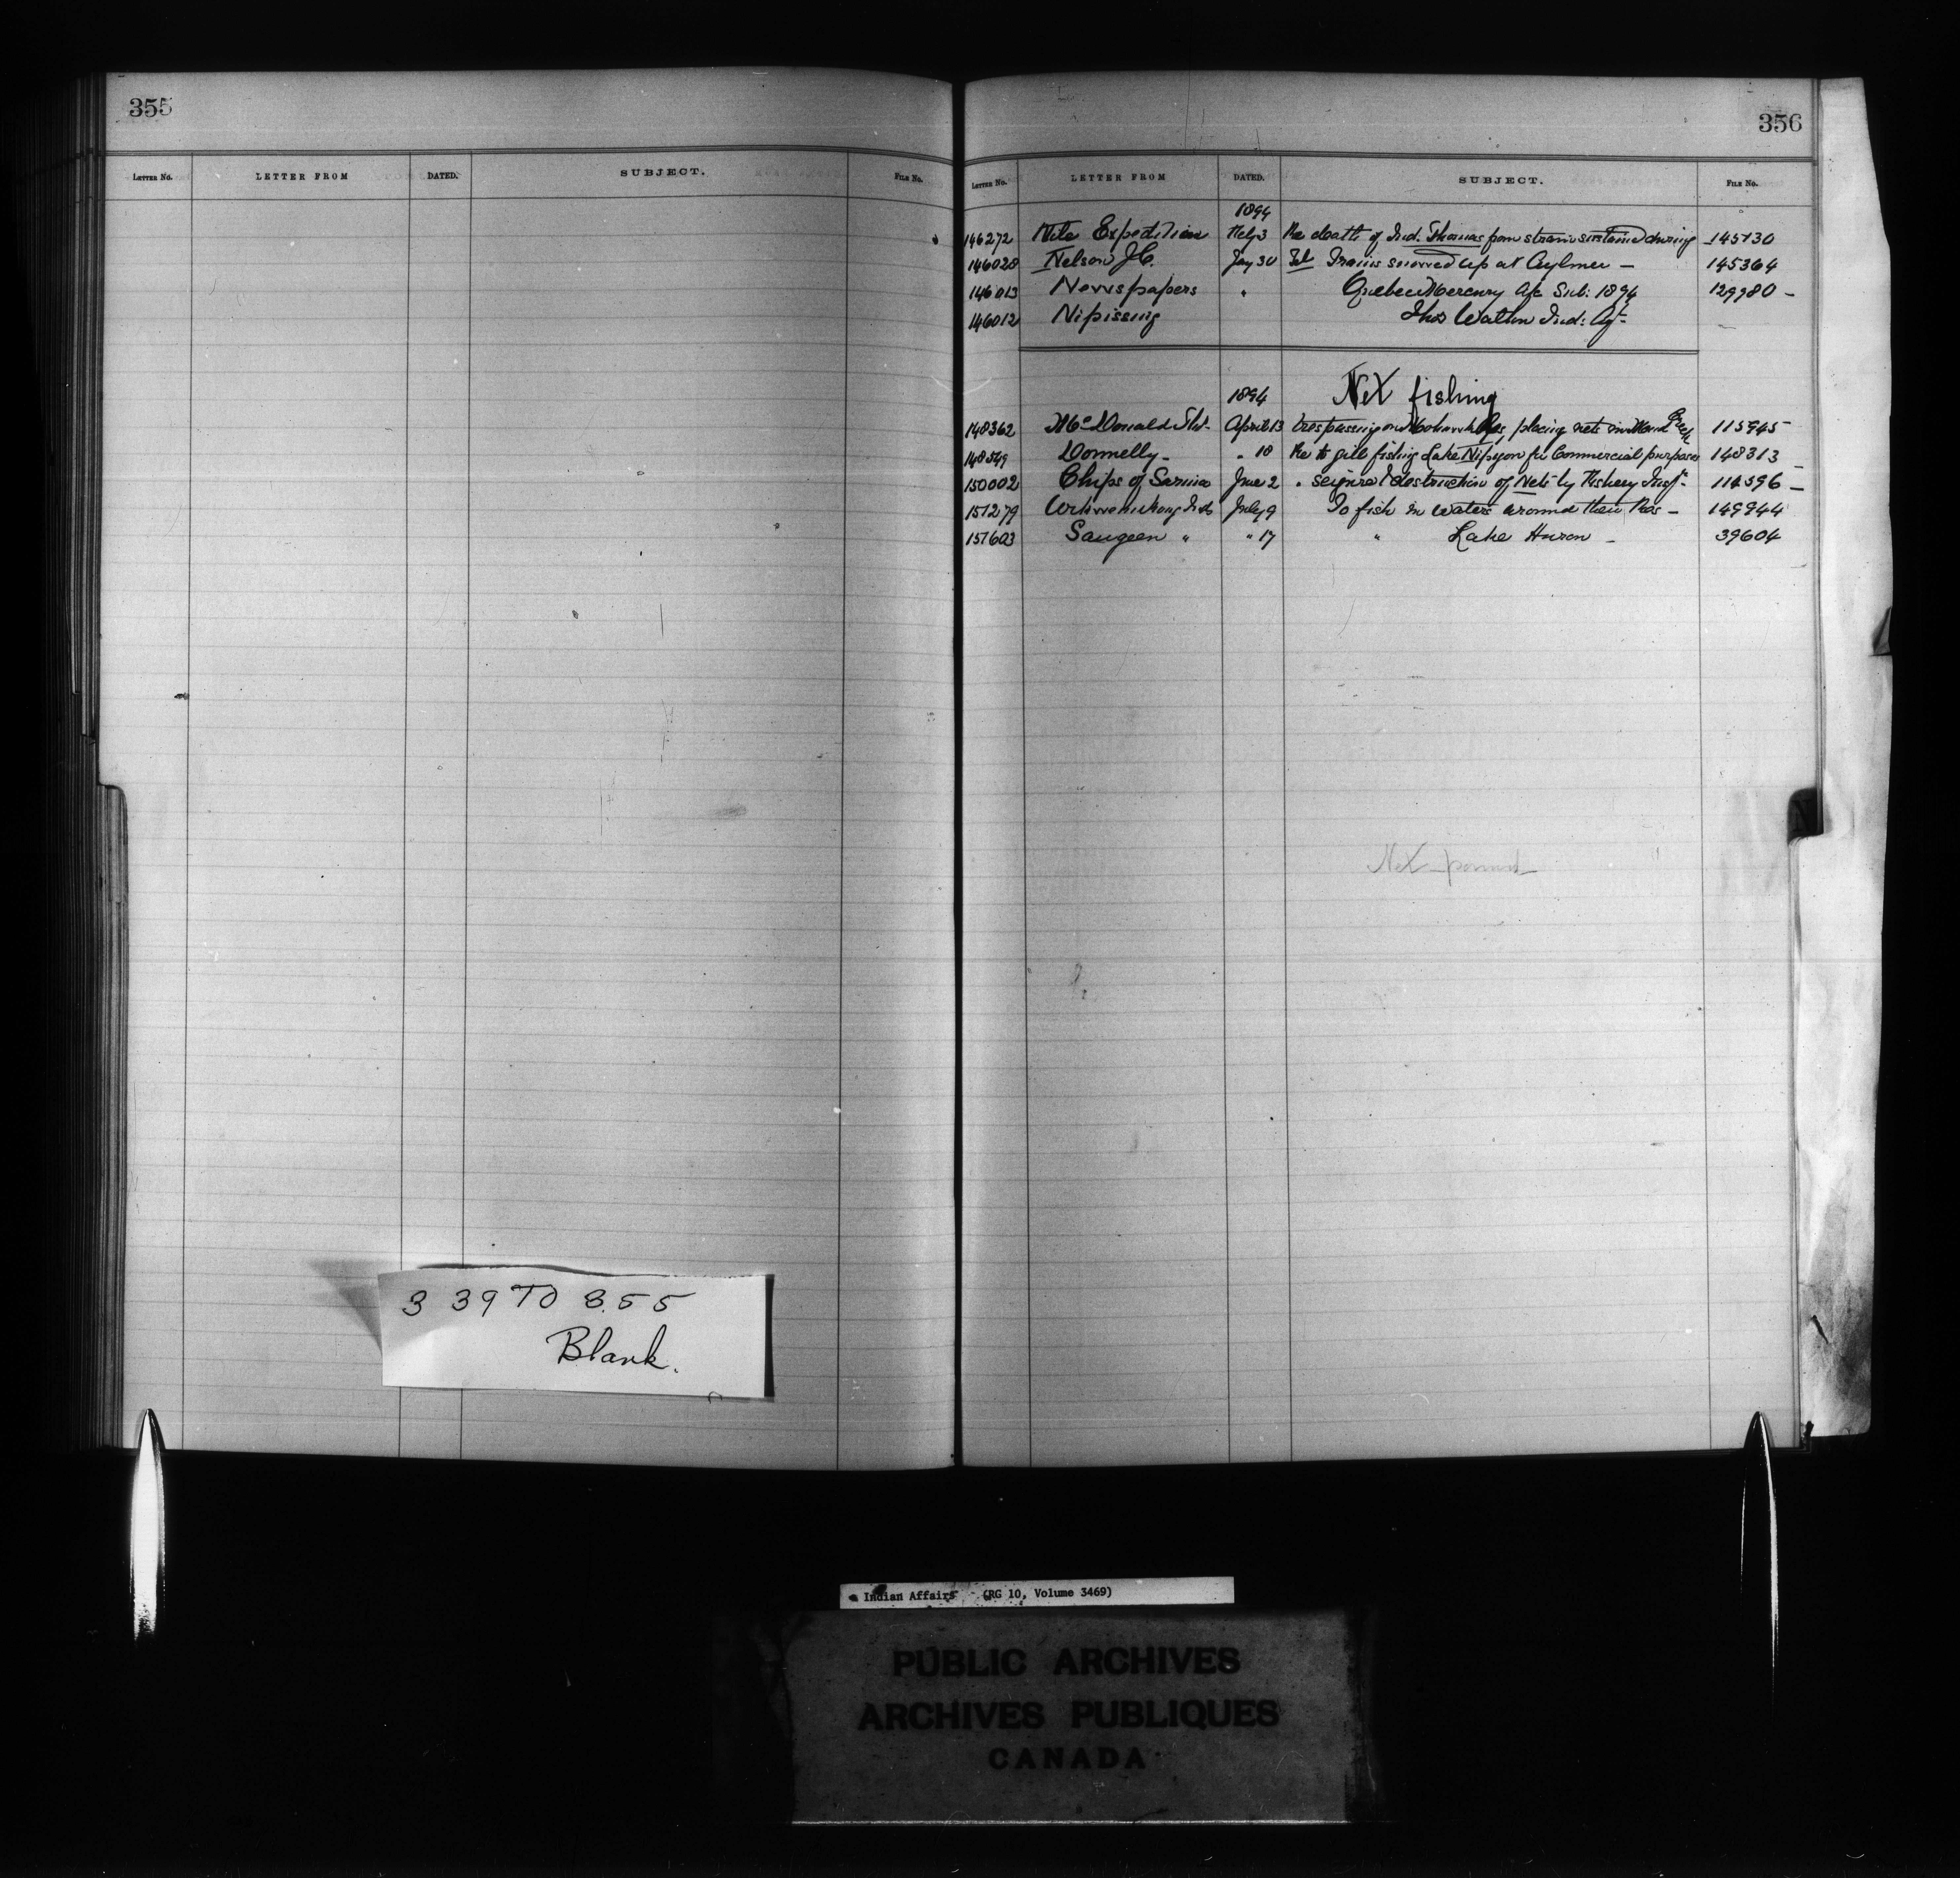 355
LETTER No. LETTER FROM DATED. SUBJECT. FILE No.
3 39 TO 355
Blank.
356
LETTER No. LETTER FROM DATED. SUBJECT. FILE No.
1894
146272 Nile Expedition Feby 3 Re death of Ind. Thomas from strain sustained during 145130
146028 Nelson J.C. Jany 30 Tel Trains snowed up at Aylmer — 145364
146013 Newspapers " Quebec Mercury a/c Sub: 1894 129980 —
146012 Nipissing Thos Walton Ind: Agt. —
1894 Net fishing
148362 McDonald April 13 trespassing on Mohawk placing nets in Creek 115945
148549 Donnelly — " 18 Re to gill fishing Lake Nipigon for Commercial purposes 148313 —
150002 Chips of Sarnia June 2 " seizure & destruction of Nets by Fishery Insp. 114396 —
151279 Wikwemikong Inds July 9 To fish in waters around their Res — 149944
151603 Saugeen " " 17 " Lake Huron — 39604
Net pound
Indian Affairs (RG 10, Volume 3469)
PUBLIC ARCHIVES
ARCHIVES PUBLIQUES
CANADA